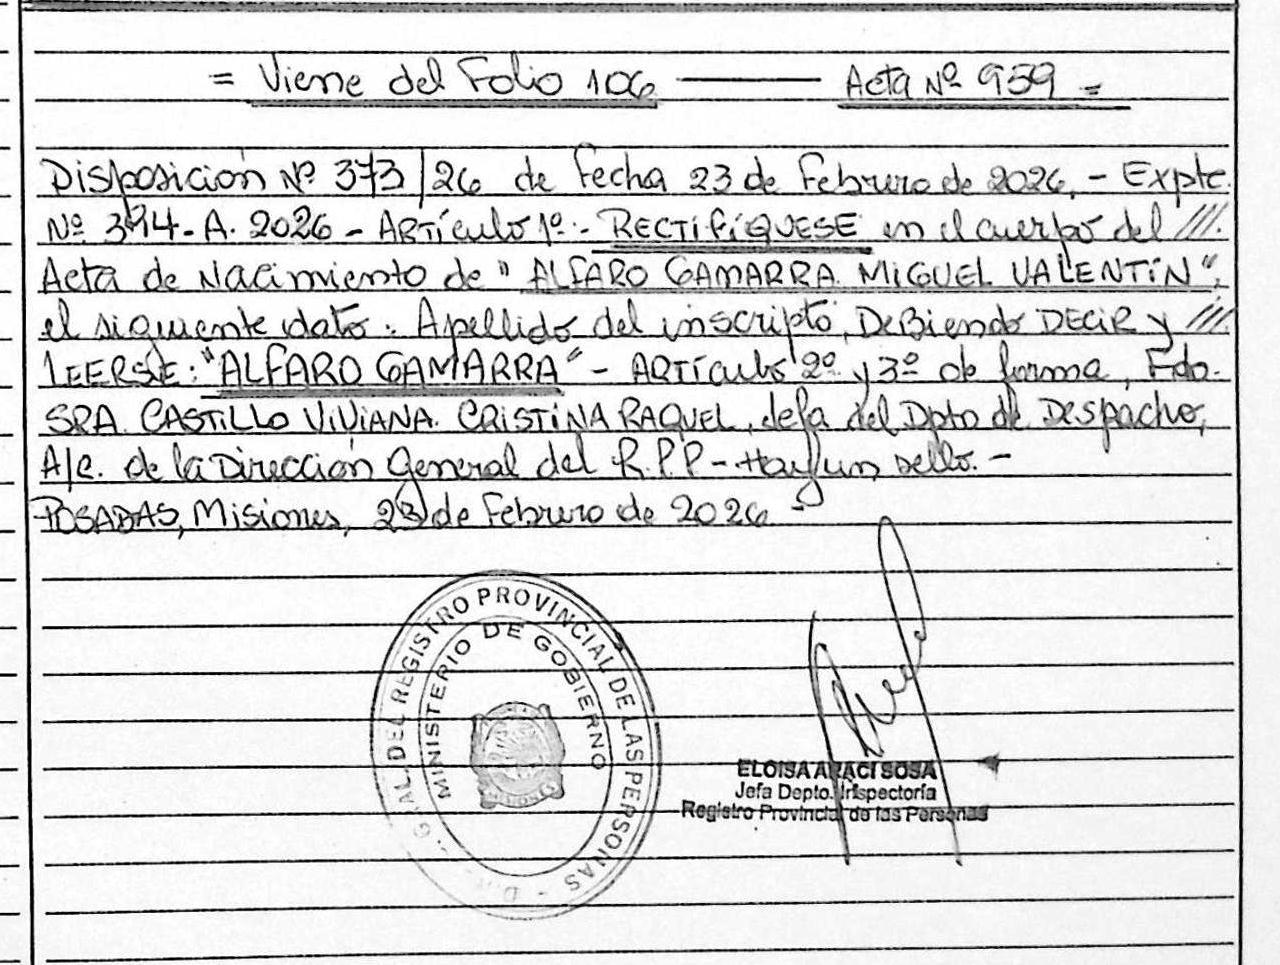 = Viene del Folio 106 ——— Acta Nº 959 =
Disposición Nº 373/26 de fecha 23 de Febrero de 2026, - Expte.
Nº 394-A. 2026 - ARTículo 1º.- RECTIFÍQUESE en el cuerpo del ///.
Acta de Nacimiento de "ALFARO GAMARRA MIGUEL VALENTÍN",
el siguiente dato: Apellido del inscripto, DeBiendo DECIR y ///
LEERSE: "ALFARO GAMARRA" - ARTículo 2º y 3º de forma, Fdo.
SRA. CASTILLO VIVIANA CRISTINA RAQUEL, Jefa del Dpto de Despacho,
A/c. de la Dirección General del R.P.P - Hay un sello. -
POSADAS, Misiones, 23 de Febrero de 2026 -
GAL. DEL REGISTRO PROVINCIAL DE LAS PERSONAS -
MINISTERIO DE GOBIERNO
ELOISA ARACI SOSA
Jefa Depto. Inspectoría
Registro Provincial de las Personas